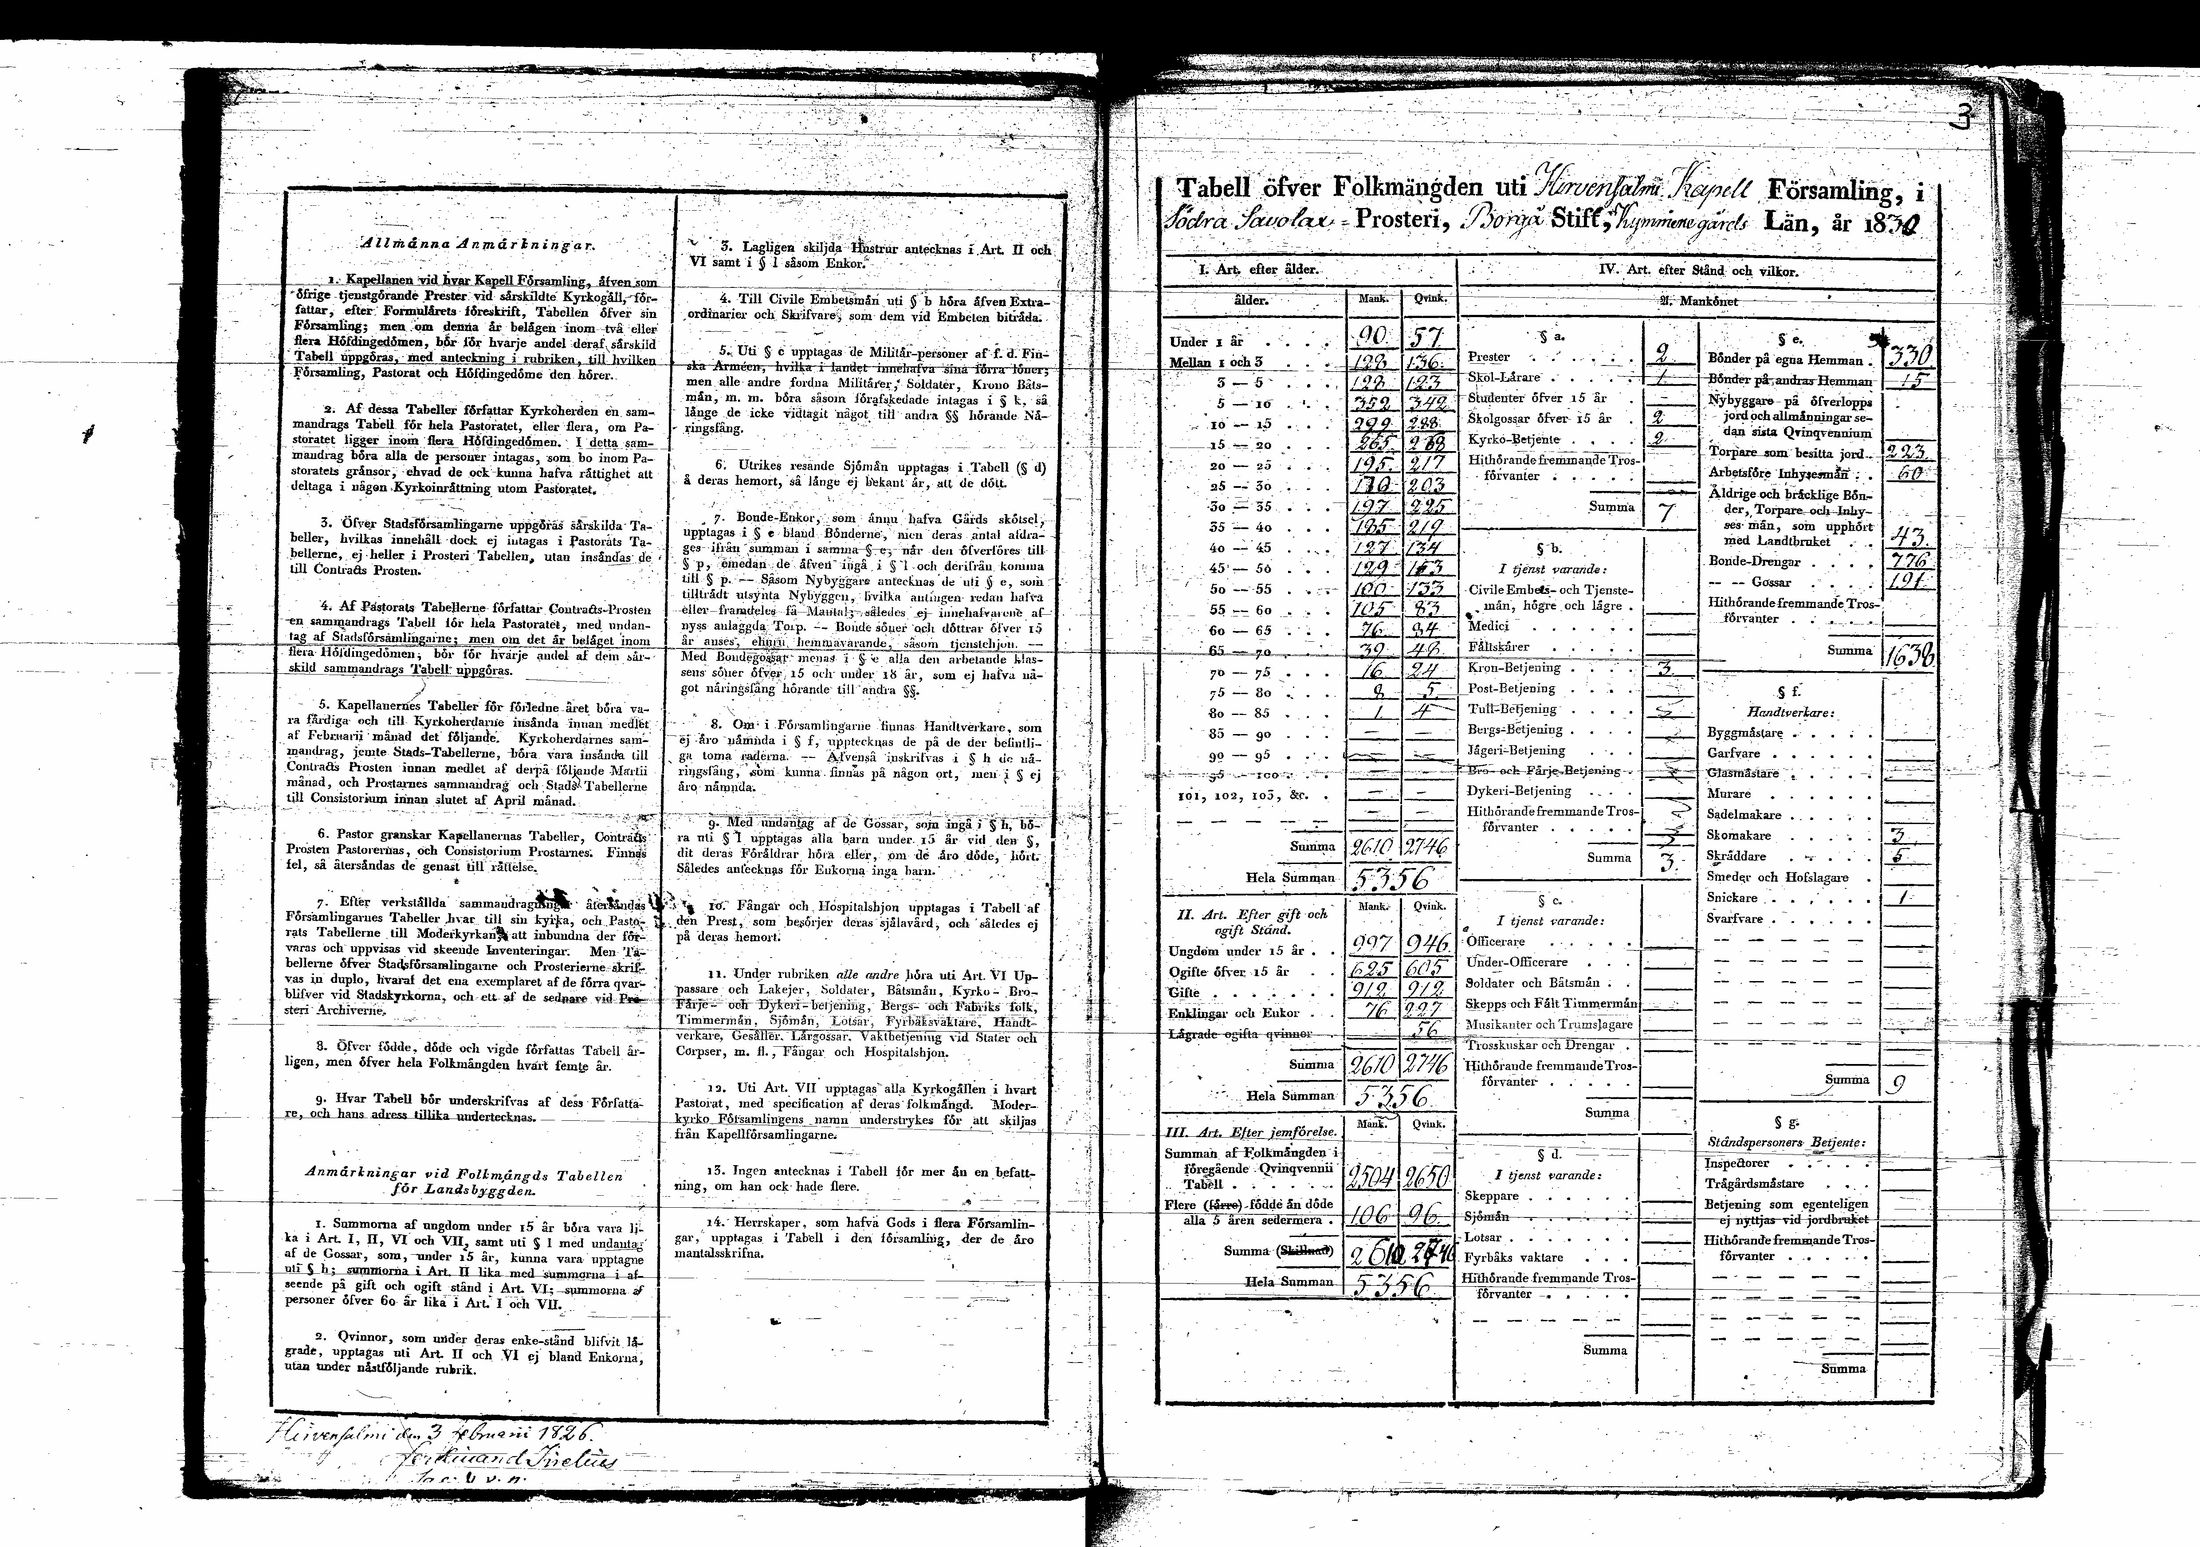 Allmänna Anmärkningar.
1. Kapellanen vid hvar Kapell Församling, äfven som
öfrige tjenstgörande Prester vid särskildte Kyrkogäll, för-
fattar, efter Formulärets föreskrift, Tabellen öfver sin
Församling; men om denna är belägen inom två eller
flera Höfdingedömen, bör för hvarje andel deraf särskild
Tabell uppgöras, med anteckning i rubriken, till hvilken
Församling, Pastorat och Höfdingedöme den hörer.
2. Af dessa Tabeller författar Kyrkoherden en sam-
mandrags Tabell för hela Pastoratet, eller flera, om Pa-
storatet ligger inom flera Höfdingedömen. I detta sam-
mandrag böra alla de personer intagas, som bo inom Pa-
storatets gränsor, ehvad de ock kunna hafva rättighet att
deltaga i någon Kyrkoinrättning utom Pastoratet.
3. Öfver Stadsförsamlingarne uppgöras särskilda Ta-
beller, hvilkas innehåll dock ej intagas i Pastorats Ta-
bellerne, ej heller i Prosteri Tabellen, utan insändas de
till Contracts Prosten.
4. Af Pastorats Tabellerne författar Contracts-Prosten
en sammandrags Tabell för hela Pastoratet, med undan-
tag af Stadsförsamlingarne; men om det är beläget inom
flera Höfdingedömen, bör för hvarje andel af dem sär-
skild sammandrags Tabell uppgöras.
5. Kapellanernes Tabeller för förledne året böra va-
ra färdiga och till Kyrkoherdarne insända innan medlet
af Februarii månad det följande. Kyrkoherdarnes sam-
mandrag, jemte Stads-Tabellerne, böra vara insända till
Contracts Prosten innan medlet af derpå följande Martii
månad, och Prostarnes sammandrag och Stads Tabellerne
till Consistorium innan slutet af April månad.
6. Pastor granskar Kapellanernas Tabeller, Contracts
Prosten Pastorernas, och Consistorium Prostarnes. Finnas
fel, så återsändas de genast till rättelse.
7. Efter verkställda sammandragningar återsändas
Församlingarnes Tabeller hvar till sin kyrka, och Pasto-
rats Tabellerne till Moderkyrkan, att inbundna der för-
varas och uppvisas vid skeende Inventeringar. Men Ta-
bellerne öfver Stadsförsamlingarne och Prosterierne skrif-
vas in duplo, hvaraf det ena exemplaret af de förra qvar-
blifver vid Stadskyrkorna, och ett af de sednare vid Pro-
steri Archiverne.
8. Öfver födde, döde och vigde författas Tabell år-
ligen, men öfver hela Folkmängden hvart femte år.
9. Hvar Tabell bör underskrifvas af dess Författa-
re, och hans adress tillika undertecknas.
Anmärkningar vid Folkmängds Tabellen
för Landsbyggden.
1. Summorna af ungdom under 15 år böra vara li-
ka i Art. I, II, VI och VII, samt uti § l med undantag
af de Gossar, som, under 15 år, kunna vara upptagne
uti § h; summorna i Art. II lika med summorna i af-
seende på gift och ogift stånd i Art. VI; summorna af
personer öfver 60 år lika i Art. I och VII.
2. Qvinnor, som under deras enke-stånd blifvit lä-
grade, upptagas uti Art. II och VI ej bland Enkorna,
utan under nästföljande rubrik.
3. Lagligen skiljda Hustrur antecknas i Art. II och
VI samt i § l såsom Enkor.
4. Till Civile Embetsmän uti § b höra äfven Extra-
ordinarier och Skrifvare, som dem vid Embeten biträda.
5. Uti § c upptagas de Militär-personer af f. d. Fin-
ska Arméen, hvilka i landet innehafva sina förra löner;
men alle andre fordna Militärer, Soldater, Krono Båts-
män, m. m. böra såsom förafskedade intagas i § k, så
länge de icke vidtagit något till andra §§ hörande Nä-
ringsfång.
6. Utrikes resande Sjömän upptagas i Tabell (§ d)
å deras hemort, så länge ej bekant är, att de dött.
7. Bonde-Enkor, som ännu hafva Gårds skötsel,
upptagas i § e bland Bönderne, men deras antal afdra-
ges ifrån summan i samma § e, när den öfverföres till
§ p, emedan de äfven ingå i § l och derifrån komma
till § p. — Såsom Nybyggare antecknas de uti § e, som
tillträdt utsynta Nybyggen, hvilka antingen redan hafva
eller framdeles få Mantal; således ej innehafvarene af
nyss anlaggda Torp. — Bonde söner och döttrar öfver 15
år anses, ehuru hemmavarande, såsom tjenstehjon. —
Med Bondegossar menas i § e alla den arbetande klas-
sens söner öfver 15 och under 18 år, som ej hafva nå-
got näringsfång hörande till andra §§.
8. Om i Församlingarne finnas Handtverkare, som
ej äro nämnda i § f, upptecknas de på de der befintli-
ga toma raderna. — Äfvenså inskrifvas i § h de nä-
ringsfång, som kunna finnas på någon ort, men i § ej
äro nämnda.
9. Med undantag af de Gossar, som ingå i § h, bö-
ra uti § l upptagas alla barn under 15 år vid den §,
dit deras Föräldrar höra eller, om de äro döde, hört.
Således antecknas för Enkorna inga barn.
10. Fångar och Hospitalshjon upptagas i Tabell af
den Prest, som besörjer deras själavård, och således ej
på deras hemort.
11. Under rubriken alle andre höra uti Art. VI Up-
passare och Lakejer, Soldater, Båtsmän, Kyrko- Bro-
Färje- och Dykeri-betjening, Bergs- och Fabriks folk,
Timmermän, Sjömän, Lotsar, Fyrbåksvaktare, Handt-
verkare, Gesäller, Lärgossar, Vaktbetjening vid Stater och
Corpser, m. fl., Fångar och Hospitalshjon.
12. Uti Art. VII upptagas alla Kyrkogällen i hvart
Pastorat, med specification af deras folkmängd. Moder-
kyrko Församlingens namn understrykes för att skiljas
från Kapellförsamlingarne.
13. Ingen antecknas i Tabell för mer än en befatt-
ning, om han ock hade flere.
14. Herrskaper, som hafva Gods i flera Församlin-
gar, upptagas i Tabell i den församling, der de äro
mantalsskrifna.
Hirvensalmi den 3 februarii 1826.
Ferdinand
3
Tabell öfver Folkmängden uti Hirvensalmi Kapell Församling, i
Södra Savolax Prosteri, Borgå Stift, Kymmenegårds Län, år 1830
I. Art. efter ålder.
ålder. Mank. Qvink.
Under 1 år 90 57
Mellan 1 och 3 128 136
3 — 5 128 123
5 — 10 352 342
10 — 15 299 288
15 — 20 265 268
20 — 25 195 217
25 — 30 203
30 — 35 197 225
35 — 40 185 219
40 — 45 127 134
45 — 50 129 153
50 — 55 100 133
55 — 60 105 83
60 — 65 76 84
65 — 70 39 48
70 — 75 16 24
75 — 80 8 5
80 — 85 1 4
85 — 90 — —
90 — 95 — —
95 — 100 — —
101, 102, 103, &c. — —
Summa 2610 2746
Hela Summan 5356
II. Art. Efter gift och
ogift Stånd. Mank. Qvink.
Ungdom under 15 år 997 946
Ogifte öfver 15 år 625 605
Gifte 912 912
Enklingar och Enkor 76 227
Lägrade ogifta qvinnor 56
Summa 2610 2746
Hela Summan 5356
III. Art. Efter jemförelse. Mank. Qvink.
Summan af Folkmängden i
föregående Qvinqvennii
Tabell 2504 2650
Flere (färre) födde än döde
alla 5 åren sedermera 106 96
Summa (Skillnad) 2610 2746
Hela Summan 5356
IV. Art. efter Stånd och vilkor.
A. Mankönet
§ a.
Prester 2
Skol-Lärare 1
Studenter öfver 15 år —
Skolgossar öfver 15 år 2
Kyrko-Betjente 2
Hithörande fremmande Tros-
förvanter
Summa 7
§ b.
I tjenst varande:
Civile Embets- och Tjenste-
män, högre och lägre
Medici
Fältskärer
Kron-Betjening 3
Post-Betjening
Tull-Betjening
Bergs-Betjening
Jägeri-Betjening
Bro- och Färje-Betjening
Dykeri-Betjening
Hithörande fremmande Tros-
förvanter
Summa 3
§ c.
I tjenst varande:
Officerare
Under-Officerare
Soldater och Båtsmän
Skepps och Fält Timmermän
Musikanter och Trumslagare
Trosskuskar och Drengar
Hithörande fremmande Tros-
förvanter
Summa
§ d.
I tjenst varande:
Skeppare
Sjömän
Lotsar
Fyrbåks vaktare
Hithörande fremmande Tros-
förvanter
Summa
§ e.
Bönder på egna Hemman 330
Bönder på andras Hemman 15
Nybyggare på öfverlopps
jord och allmänningar se-
dan sista Qvinqvennium
Torpare som besitta jord 223
Arbetsföre Inhysesmän 60
Åldrige och bräcklige Bön-
der, Torpare och Inhy-
ses män, som upphört
med Landtbruket 43
Bonde-Drengar 776
— — Gossar 191
Hithörande fremmande Tros-
förvanter
Summa 1638
§ f.
Handtverkare:
Byggmästare
Garfvare
Glasmästare
Murare
Sadelmakare
Skomakare 3
Skräddare 5
Smeder och Hofslagare
Snickare 1
Svarfvare
Summa 9
§ g.
Ståndspersoners Betjente:
Inspectorer
Trägårdsmästare
Betjening som egenteligen
ej nyttjas vid jordbruket
Hithörande fremmande Tros-
förvanter
Summa